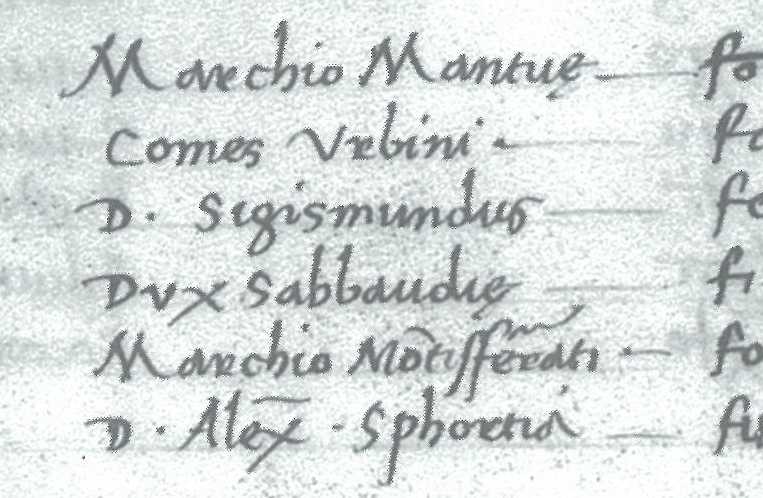 Marchio Mantuę — fo
Comes Vrbini · — fo
D. Sigismundus — fo
Dux Sabbaudię — fi
Marchio Mōtisferati · — fo
D. Alex̄ · Sphortia — fu